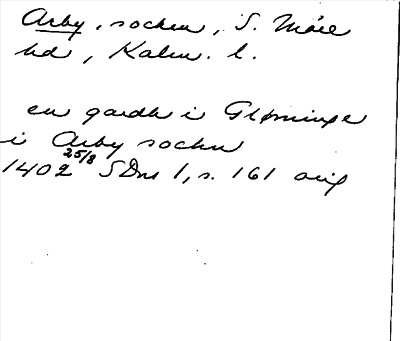 Arby, socken, S. Möre
hd, Kalm. l.
en gardh i Glømminge
i Arby sochn
1402 25/8 SDns 1, s. 161 orig